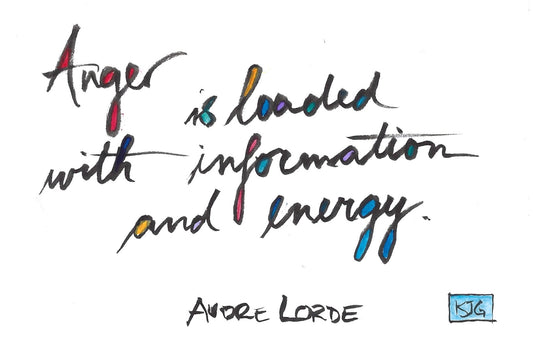 Anger
is loaded
with information
and energy.
AUDRE LORDE
KJG